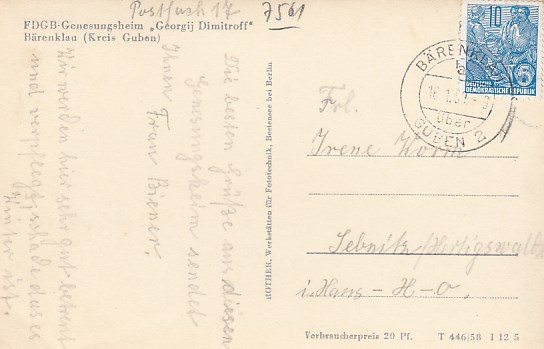 Postfach 17 7561
FDGB-Genesungsheim „Georgij Dimitroff"
Bärenklau (Kreis Guben)
Die besten Grüße aus diesen
Genesungsheim sendet
Ihnen Frau Biener.
Wir werden hier sehr gut betreut
und verpflegt, schade das es
Winter ist.
ROTHER, Werkstätten für Fototechnik, Bestensee bei Berlin
10
DEUTSCHE
DEMOKRATISCHE REPUBLIK
5
BÄRENKLAU
über
GUBEN 2
Frl.
Irene
Sebnitz/Hertigswalde
i. Haus-H-O.
Verbraucherpreis 20 Pf. T 446/58 I 12 5